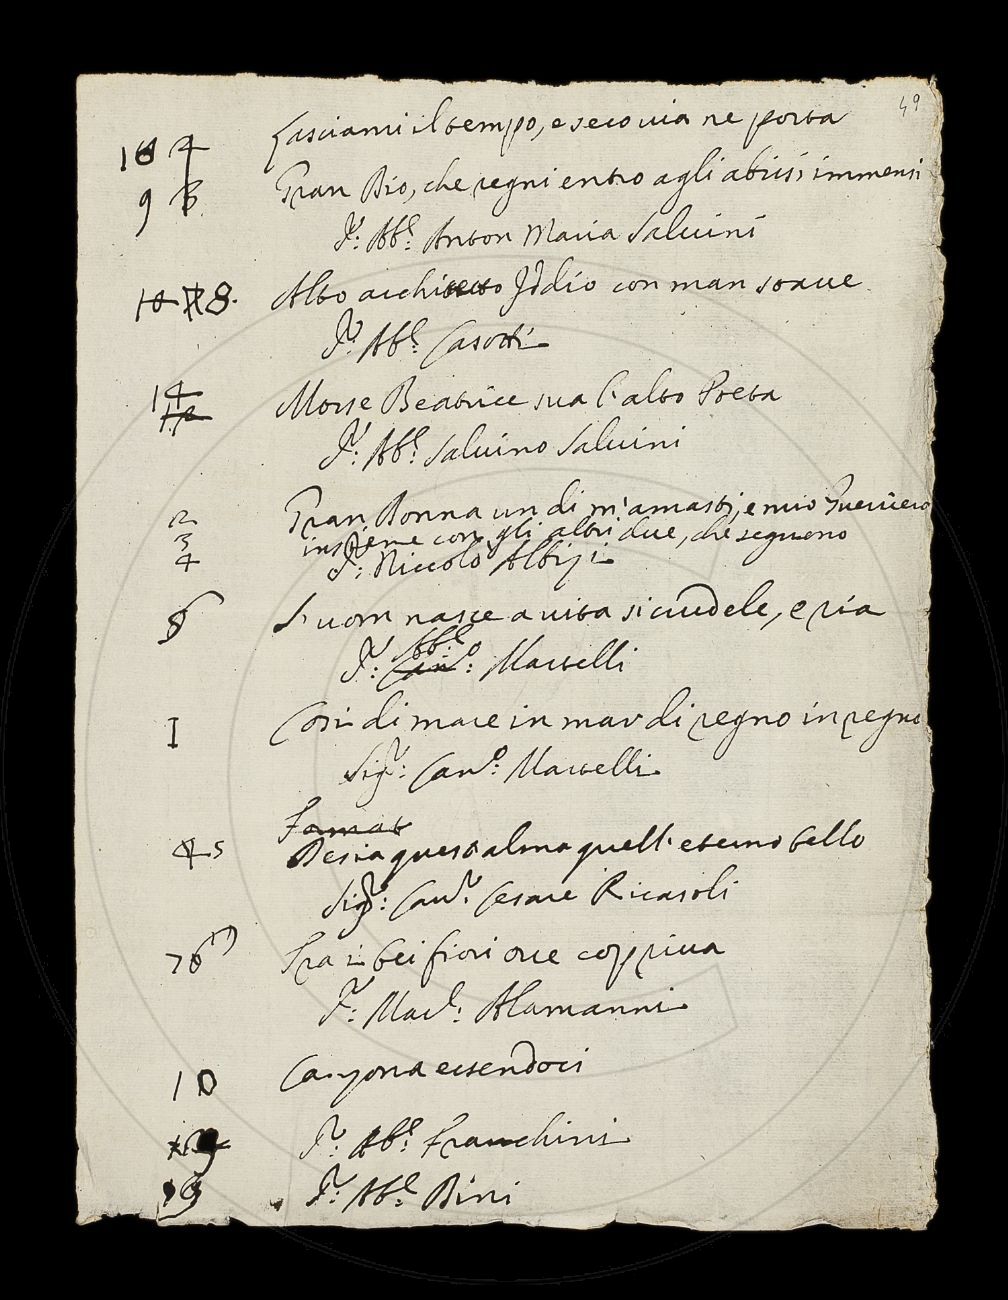 49
Lasciami il tempo, e seco via ne porta
9 Gran Dio, che regni entro agli abissi immensi
S.r: Ab.e: Anton Maria Salvini
8. Alto architetto Iddio con man soave
S.r: Ab.e: Casotti
14 Morse Beatrice sua l'alto Poeta
S.r: Ab.e: Salvino Salvini
2 Gran Donna un di m'amasti, e mio Guerriero
3 insieme con gli altri due, che seguono
4 S.r: Niccolò Albizi
S'uom nasce a vita si crudele, e ria
S.r: Ab.e: Can.o: Martelli
I Così di mare in mar di regno in regno
Sig.r: Can.o: Martelli
5 Desia quest'alma quell'eterno bello
Sig.r: Cau.r: Cesare Ricasoli
Tra i bei fiori ove coppriva
S.r: Mar.l: Alamanni
10 Canzona essendoci
S.r: Ab.e: Franchini
S.r: Ab.e: Bini